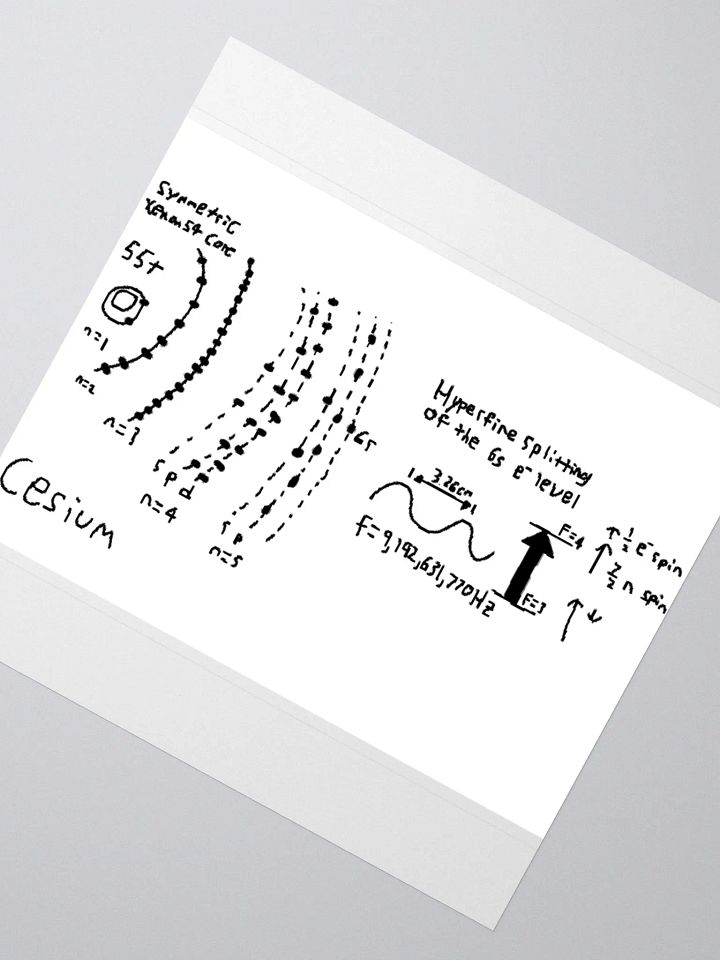 Symmetric
Xenon 54 Core
55+
n=1
n=2
n=3
s p d
n=4
s p
n=5
6s
Cesium
Hyperfine splitting
of the 6s e⁻ level
3.26cm
f=9,192,631,770Hz
F=4
↑ 1/2 e⁻ spin
↑ 7/2 n spin
F=3
↑ ↓